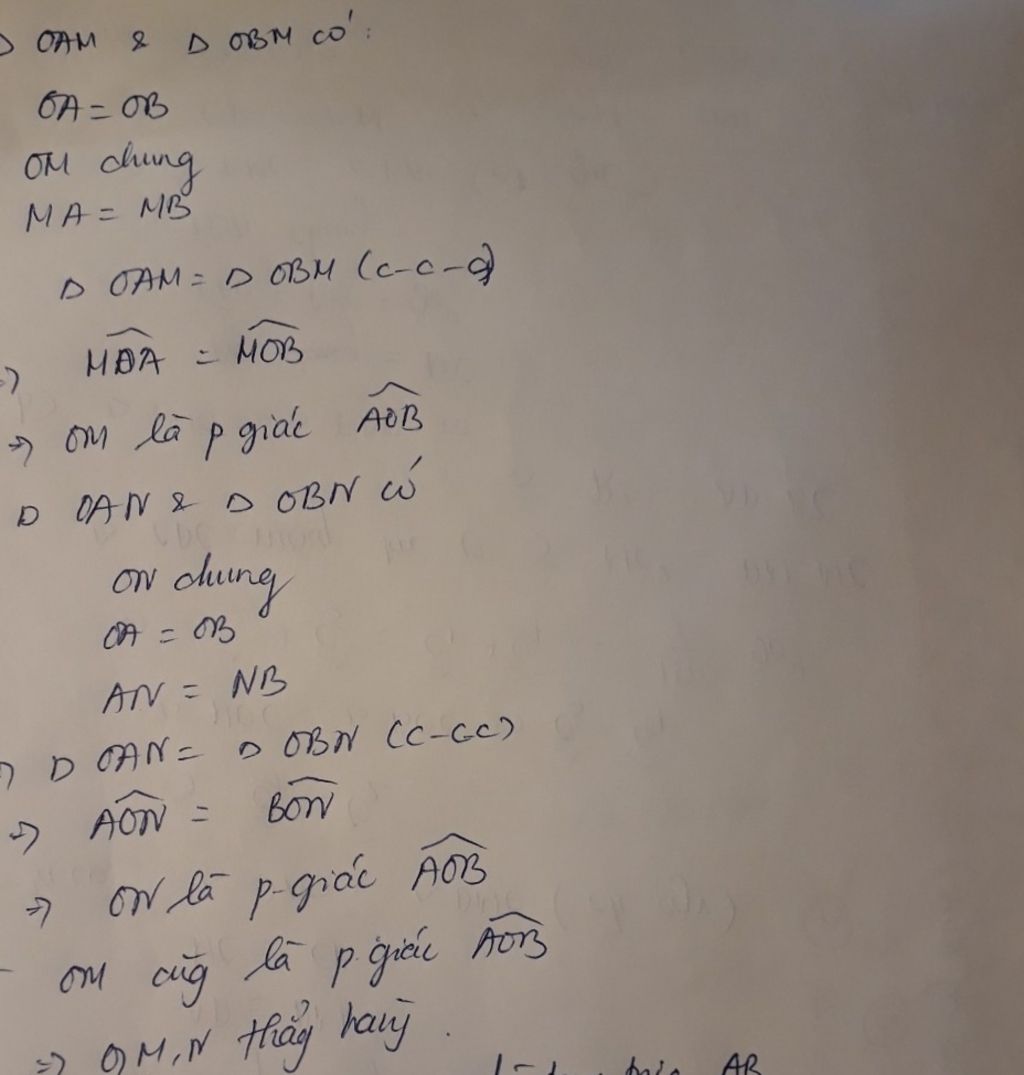 Δ OAM & Δ OBM có:
OA = OB
OM chung
MA = MB
Δ OAM = Δ OBM (c-c-c)
=> MOA = MOB
=> OM là p giác AOB
Δ OAN & Δ OBN có
ON chung
OA = OB
AN = NB
=> Δ OAN = Δ OBN (c-c-c)
=> AON = BON
=> ON là p-giác AOB
- OM cũg là p.giác AOB
=> O,M,N thẳg hàng.
AB